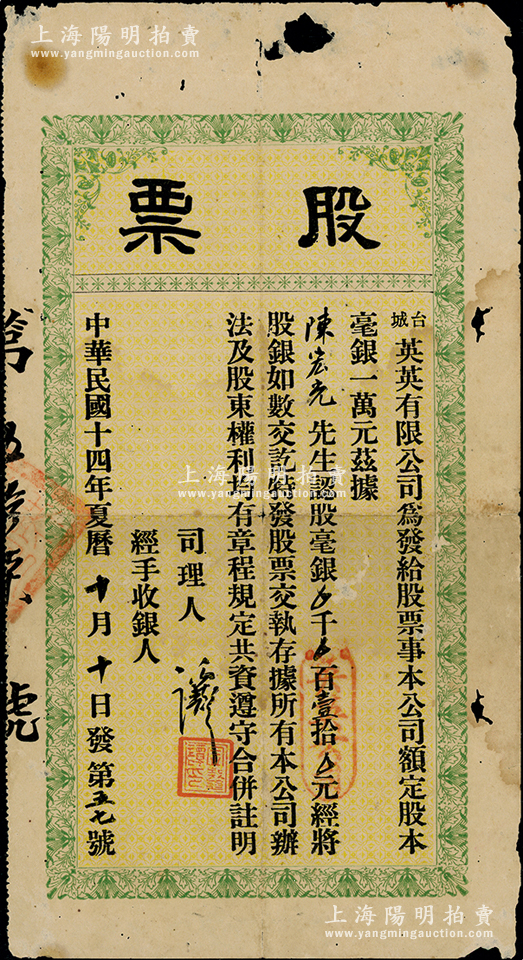 上海陽明拍賣
www.yangmingauction.com
上海陽明拍賣
www.yangmingauction.com
股票
台城英英有限公司為發給股票事本公司額定股本
毫銀一萬元茲據
陳宏光先生認股毫銀 千 百壹拾 元經將
股銀如數交訖發股票交執存據所有本公司辦
法及股東權利均有章程規定共資遵守合併註明
司理人
經手收銀人
中華民國十四年夏曆十月十日發第五七號
號
上海陽明拍賣
www.yangmingauction.com